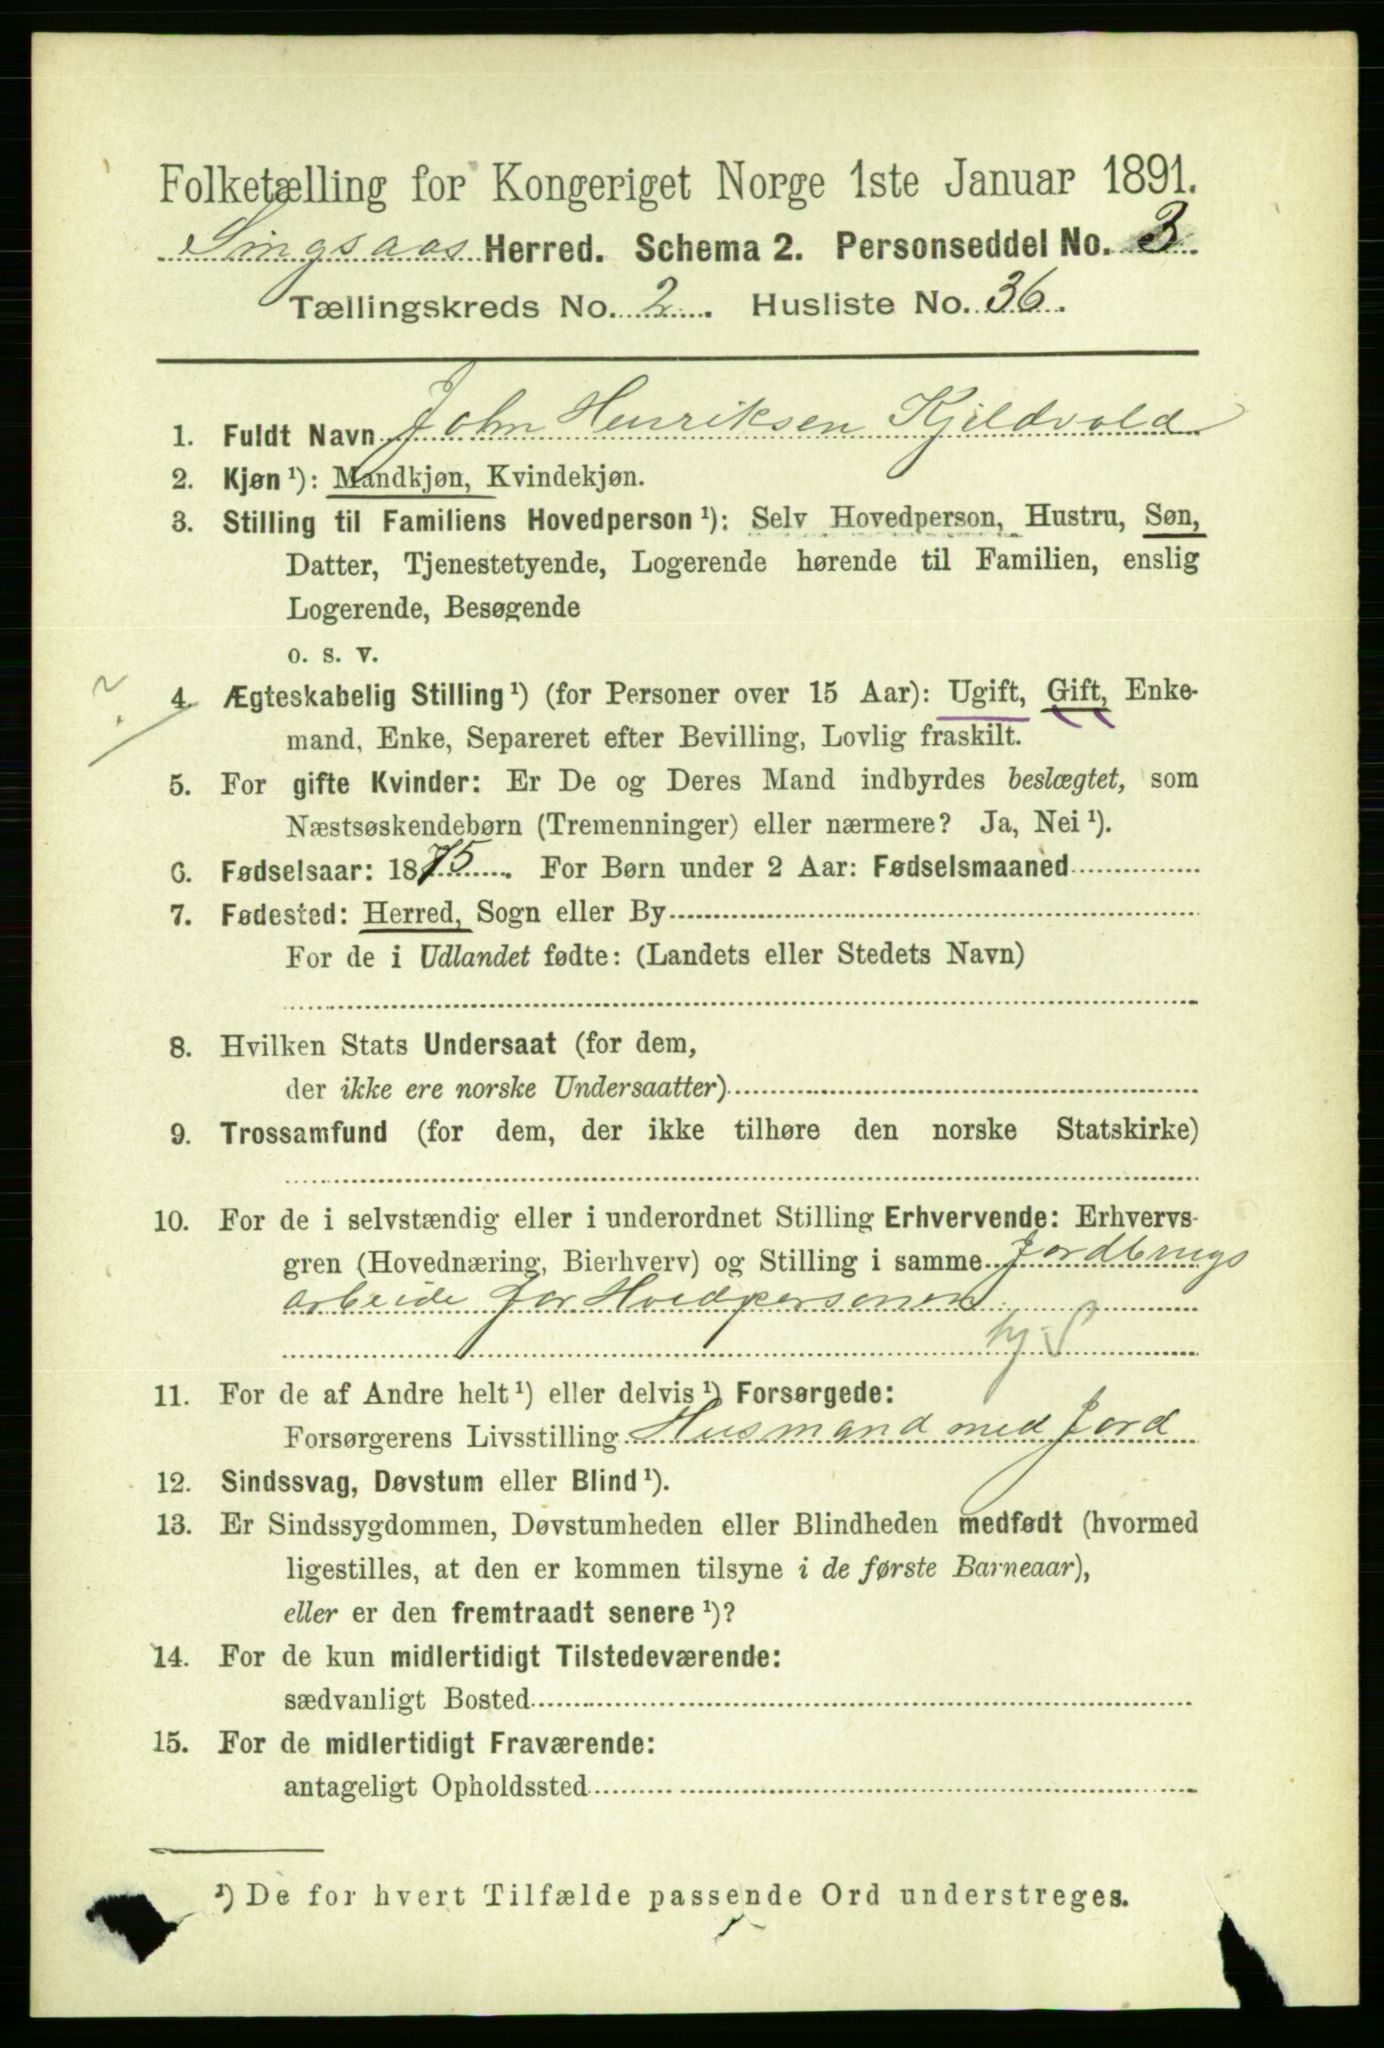 Folketælling for Kongeriget Norge 1ste Januar 1891.
Singsaas Herred. Schema 2. Personseddel No. 3
Tællingskreds No. 2. Husliste No. 36.
1. Fuldt Navn John Henriksen Kjeldvold
2. Kjøn ¹): Mandkjøn, Kvindekjøn.
3. Stilling til Familiens Hovedperson ¹): Selv Hovedperson, Hustru, Søn,
Datter, Tjenestetyende, Logerende hørende til Familien, enslig
Logerende, Besøgende
o. s. v.
?
4. Ægteskabelig Stilling ¹) (for Personer over 15 Aar): Ugift, Gift, Enke-
mand, Enke, Separeret efter Bevilling, Lovlig fraskilt.
5. For gifte Kvinder: Er De og Deres Mand indbyrdes beslægtet, som
Næstsøskendebørn (Tremenninger) eller nærmere? Ja, Nei ¹).
6. Fødselsaar: 1875. For Børn under 2 Aar: Fødselsmaaned
7. Fødested: Herred, Sogn eller By
For de i Udlandet fødte: (Landets eller Stedets Navn)
8. Hvilken Stats Undersaat (for dem,
der ikke ere norske Undersaatter)
9. Trossamfund (for dem, der ikke tilhøre den norske Statskirke)
10. For de i selvstændig eller i underordnet Stilling Erhvervende: Erhvervs-
gren (Hovednæring, Bierhverv) og Stilling i samme Jordbrugs
arbeide for Hvedpersonen
11. For de af Andre helt ¹) eller delvis ¹) Forsørgede:
Forsørgerens Livsstilling Husmand med Jord
12. Sindssvag, Døvstum eller Blind ¹).
13. Er Sindssygdommen, Døvstumheden eller Blindheden medfødt (hvormed
ligestilles, at den er kommen tilsyne i de første Barneaar),
eller er den fremtraadt senere ¹)?
14. For de kun midlertidigt Tilstedeværende:
sædvanligt Bosted
15. For de midlertidigt Fraværende:
antageligt Opholdssted
¹) De for hvert Tilfælde passende Ord understreges.